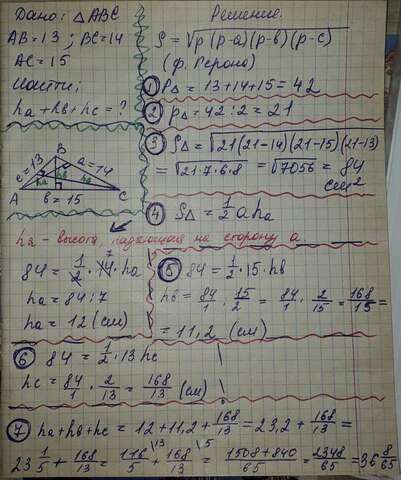 Дано: △ABC
AB=13 ; BC=14
AC=15
Найти:
ha+hв+hc=?
Решение.
S=√p(p-a)(p-в)(p-c)
(ф. Герона)
① P△=13+14+15=42
② p△=42:2=21
③ S△=√21(21-14)(21-15)(21-13)
=√21·7·6·8 =√7056=84
см²
B
c=13
a=14
ha
hв
hc
A
в=15
C
④ S△=1/2 a ha
ha - высота, падающая на сторону a
84=1/2·14·ha
7
ha=84:7
ha=12 (см)
⑤ 84=1/2·15·hв
hв=84/1:15/2=84/1·2/15=168/15=
=11,2 (см)
⑥ 84=1/2·13 hc
hc=84/1·2/13=168/13 (см)
⑦ ha+hв+hc=12+11,2+168/13=23,2+168/13=
23 1/5+168/13=116/5\13+168/13\5=1508+840/65=2348/65=36 8/65